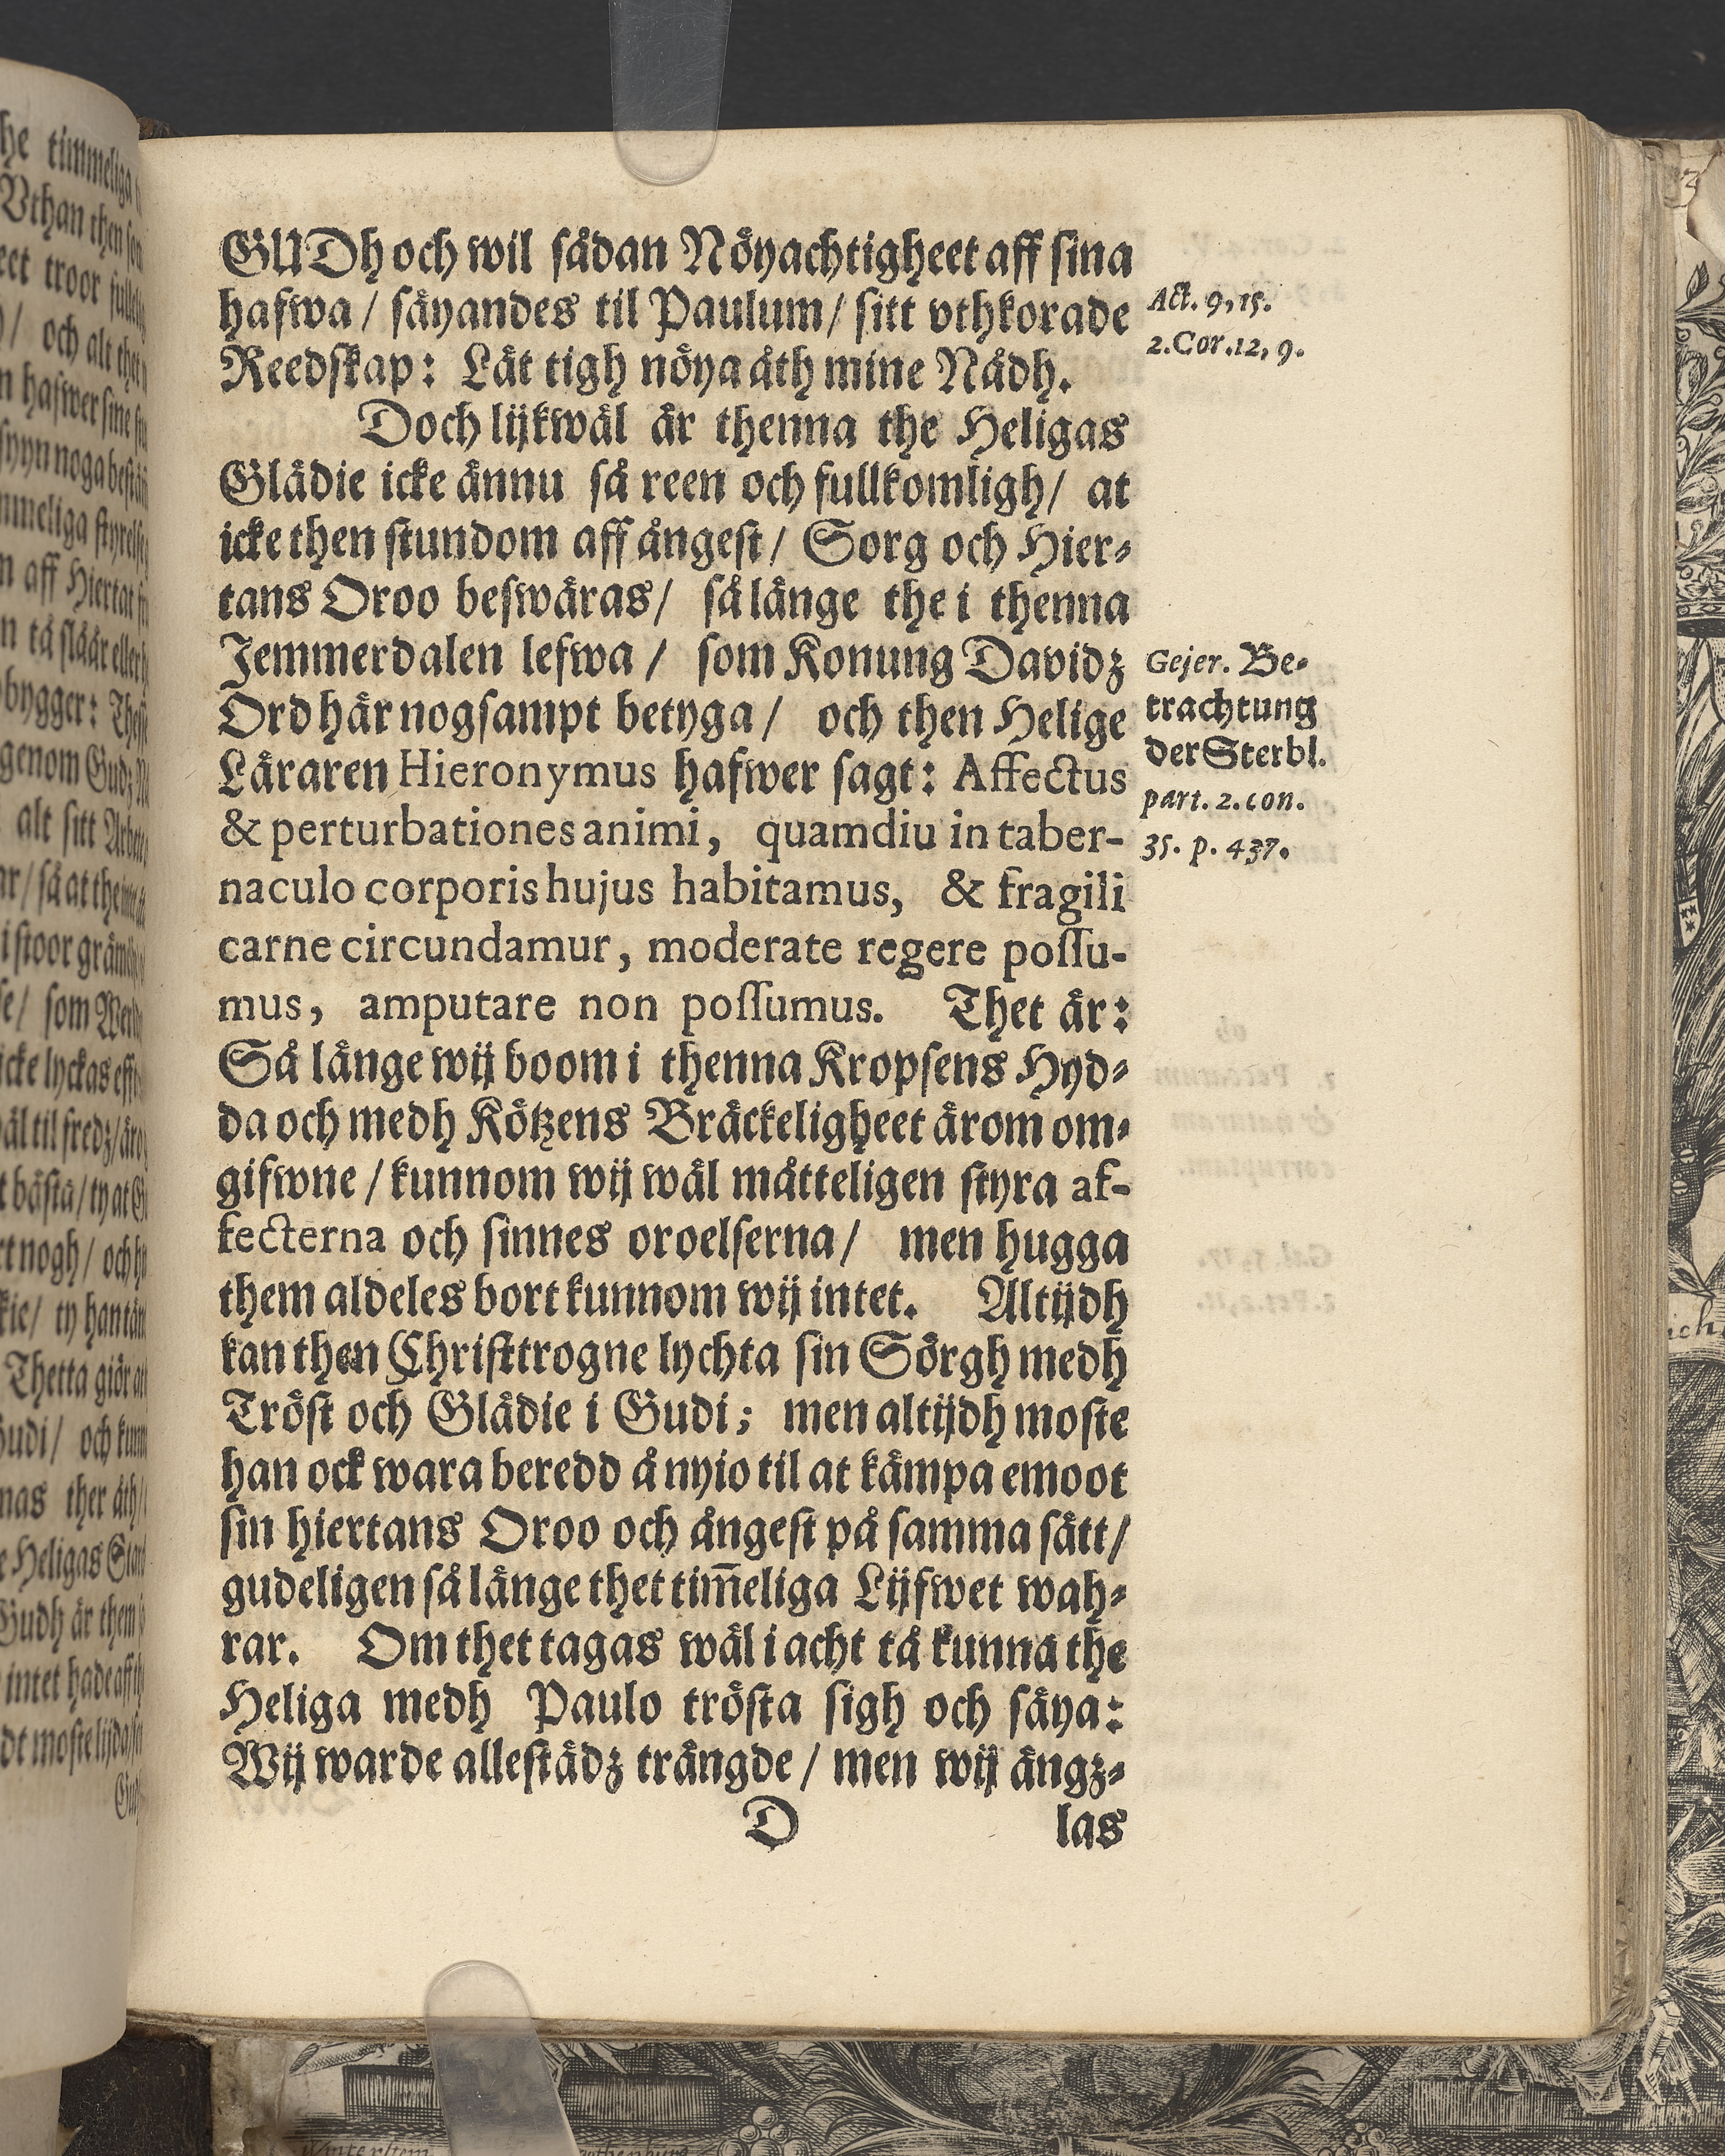 GUDh och wil sådan Nöyachtigheet aff sina
hafwa / säyandes til Paulum / sitt vthkorade
Reedskap: Låt tigh nöya åth mine Nådh.
Act. 9, 15.
2. Cor. 12, 9.
Doch lijkwäl är thenna the Heligas
Glädie icke ännu så reen och fullkomligh / at
icke then stundom aff ångest / Sorg och Hier-
tans Oroo beswäras / så länge the i thenna
Jemmerdalen lefwa / som Konung Davidz
Ord här nogsampt betyga / och then Helige
Läraren Hieronymus hafwer sagt: Affectus
& perturbationes animi, quamdiu in taber-
naculo corporis hujus habitamus, & fragili
carne circundamur, moderate regere possu-
mus, amputare non possumus. Thet är:
Gejer. Be-
trachtung
der Sterbl.
part. 2. con.
35. p. 437.
Så länge wij boom i thenna Kropsens Hyd-
da och medh Kötzens Bräckeligheet ärom om-
gifwne / kunnom wij wäl måtteligen styra af-
fecterna och sinnes oroelserna / men hugga
them aldeles bort kunnom wij intet. Altijdh
kan then Christtrogne lychta sin Sörgh medh
Tröst och Glädie i Gudi; men altijdh moste
han ock wara beredd å nyio til at kämpa emoot
sin hiertans Oroo och ångest på samma sätt /
gudeligen så länge thet tim̅eliga Lijfwet wah-
rar. Om thet tagas wäl i acht tå kunna the
Heliga medh Paulo trösta sigh och säya:
Wij warde allestädz trängde / men wij ängz-
D las